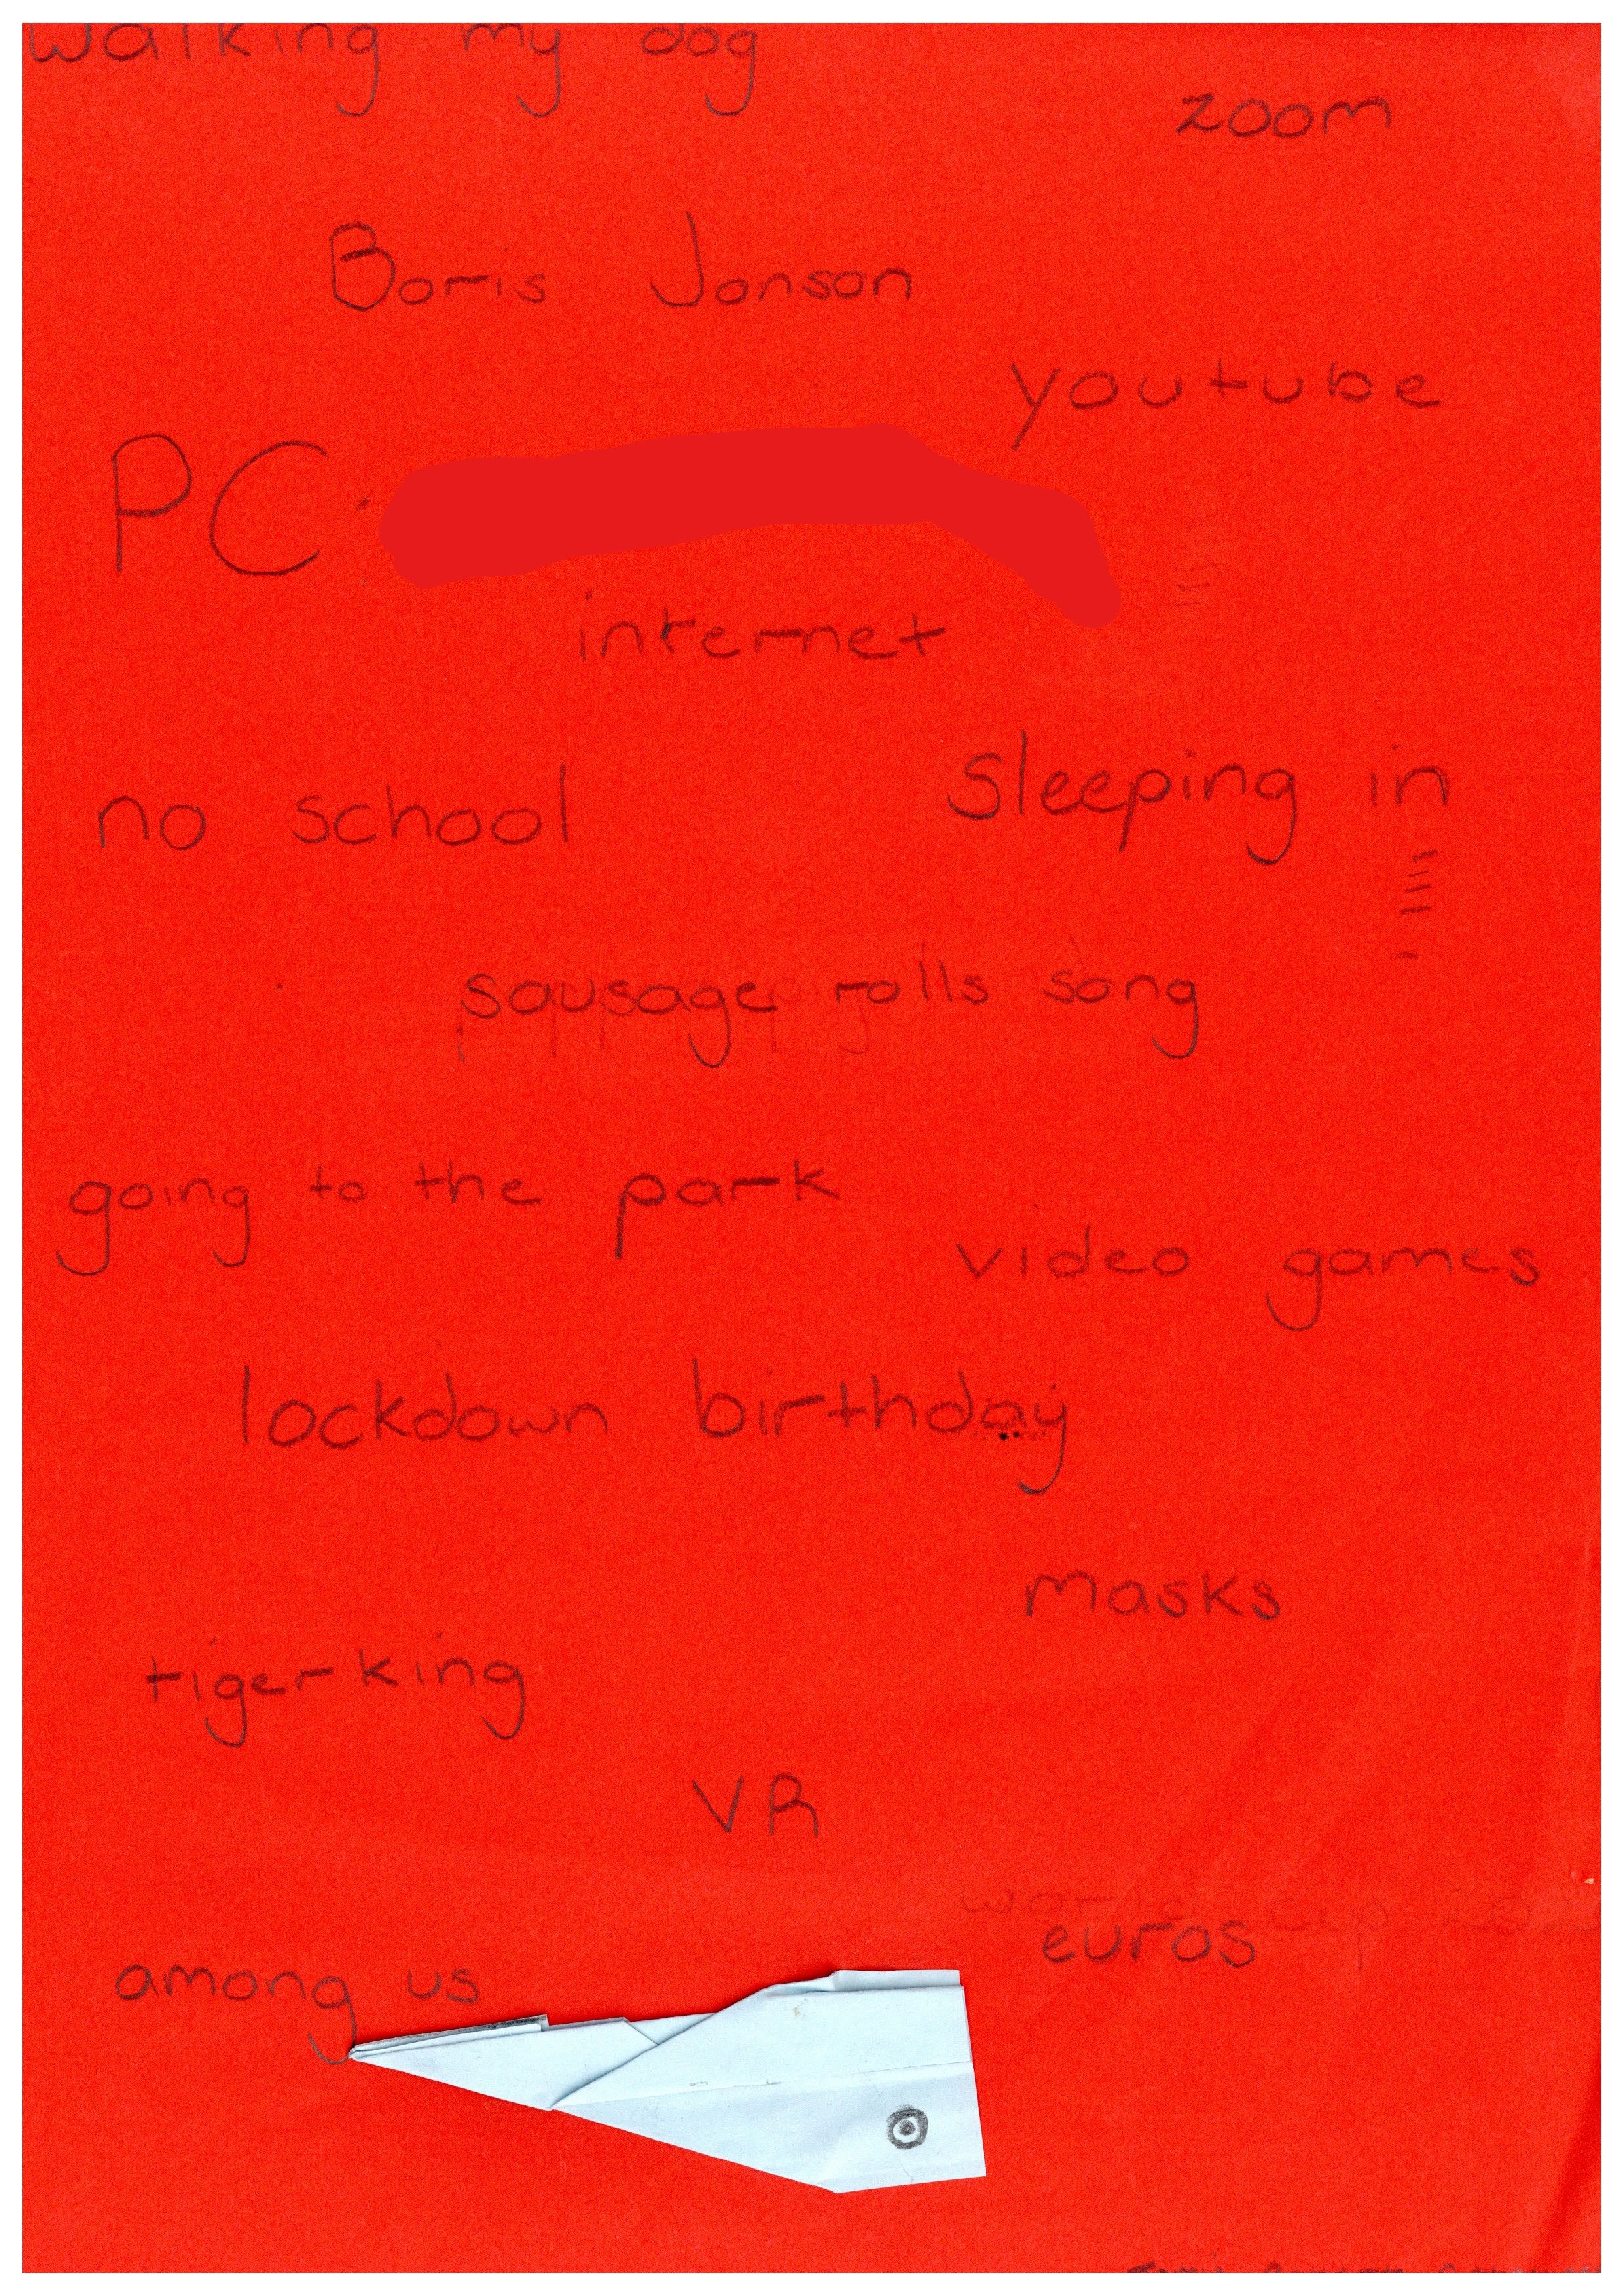 walking my dog
zoom
Boris Jonson
youtube
PC
internet
no school
sleeping in
sausage rolls song
going to the park
video games
lockdown birthday
masks
tigerking
VR
euros
among us